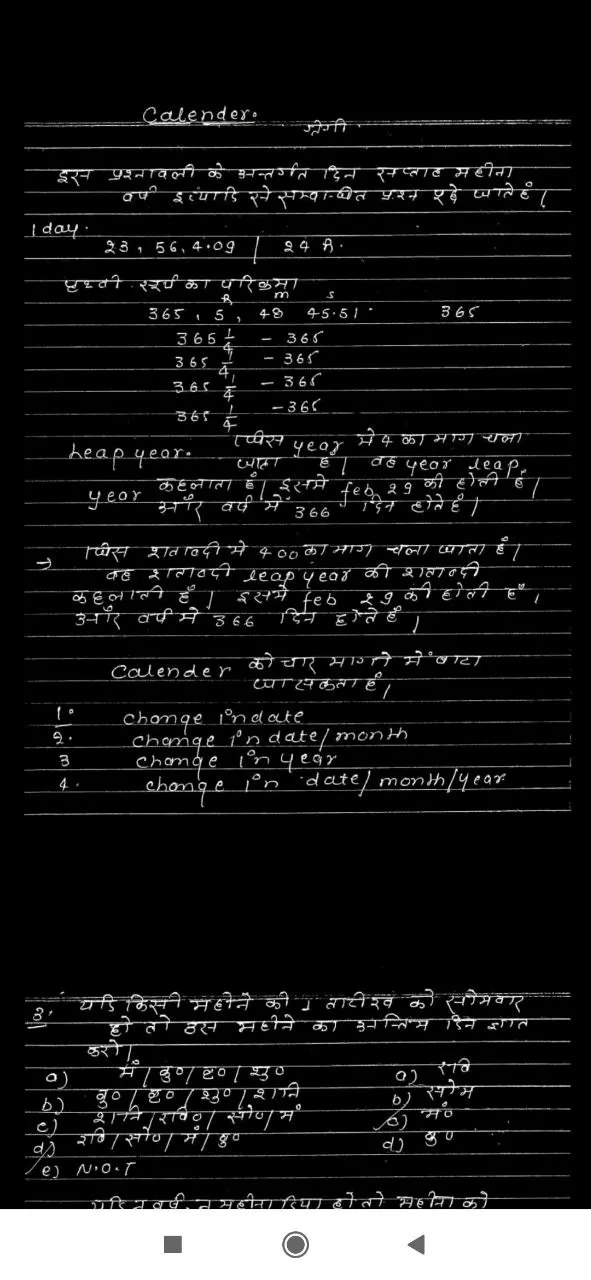 Calender.
श्रेणी
इस प्रश्नावली के अन्तर्गत दिन सप्ताह महीना
वर्ष इत्यादि से सम्बन्धित प्रश्न पूछे जाते हैं।
1 day.
23, 56, 4.09 | 24 h.
पृथ्वी सूर्य का परिक्रमा
h m s
365, 5, 48 45.51 365
365 1/4 - 365
365 1/4 - 365
365 1/4 - 365
365 1/4 - 366
Leap year. जिस year मे 4 का भाग चला
जाता है। वह year leap
year कहलाता है। इसमे feb 29 की होती है।
और वर्ष मे 366 दिन होते है।
→ जिस शताब्दी मे 400 का भाग चला जाता है।
वह शताब्दी leap year की शताब्दी
कहलाती है। इसमे feb 29 की होती है,
और वर्ष मे 366 दिन होते है।
Calender को चार भागो में बाटा
जा सकता है,
1. change in date
2. change in date/month
3 change in year
4. change in date/month/year
3. यदि किसी महीने की 1 तारीख को सोमवार
हो तो उस महीने का अन्तिम दिन ज्ञात
करो।
a) मं/बु०/बृ०/शु० a) रवि
b) बु०/बृ०/शु०/शनि b) सोम
c) शनि/रवि०/सो०/मं c) मं०
d) रवि/सो०/मं/बु० d) बु०
e) N.O.T
यदि न वर्ष, न महीना दिया हो तो महीना को